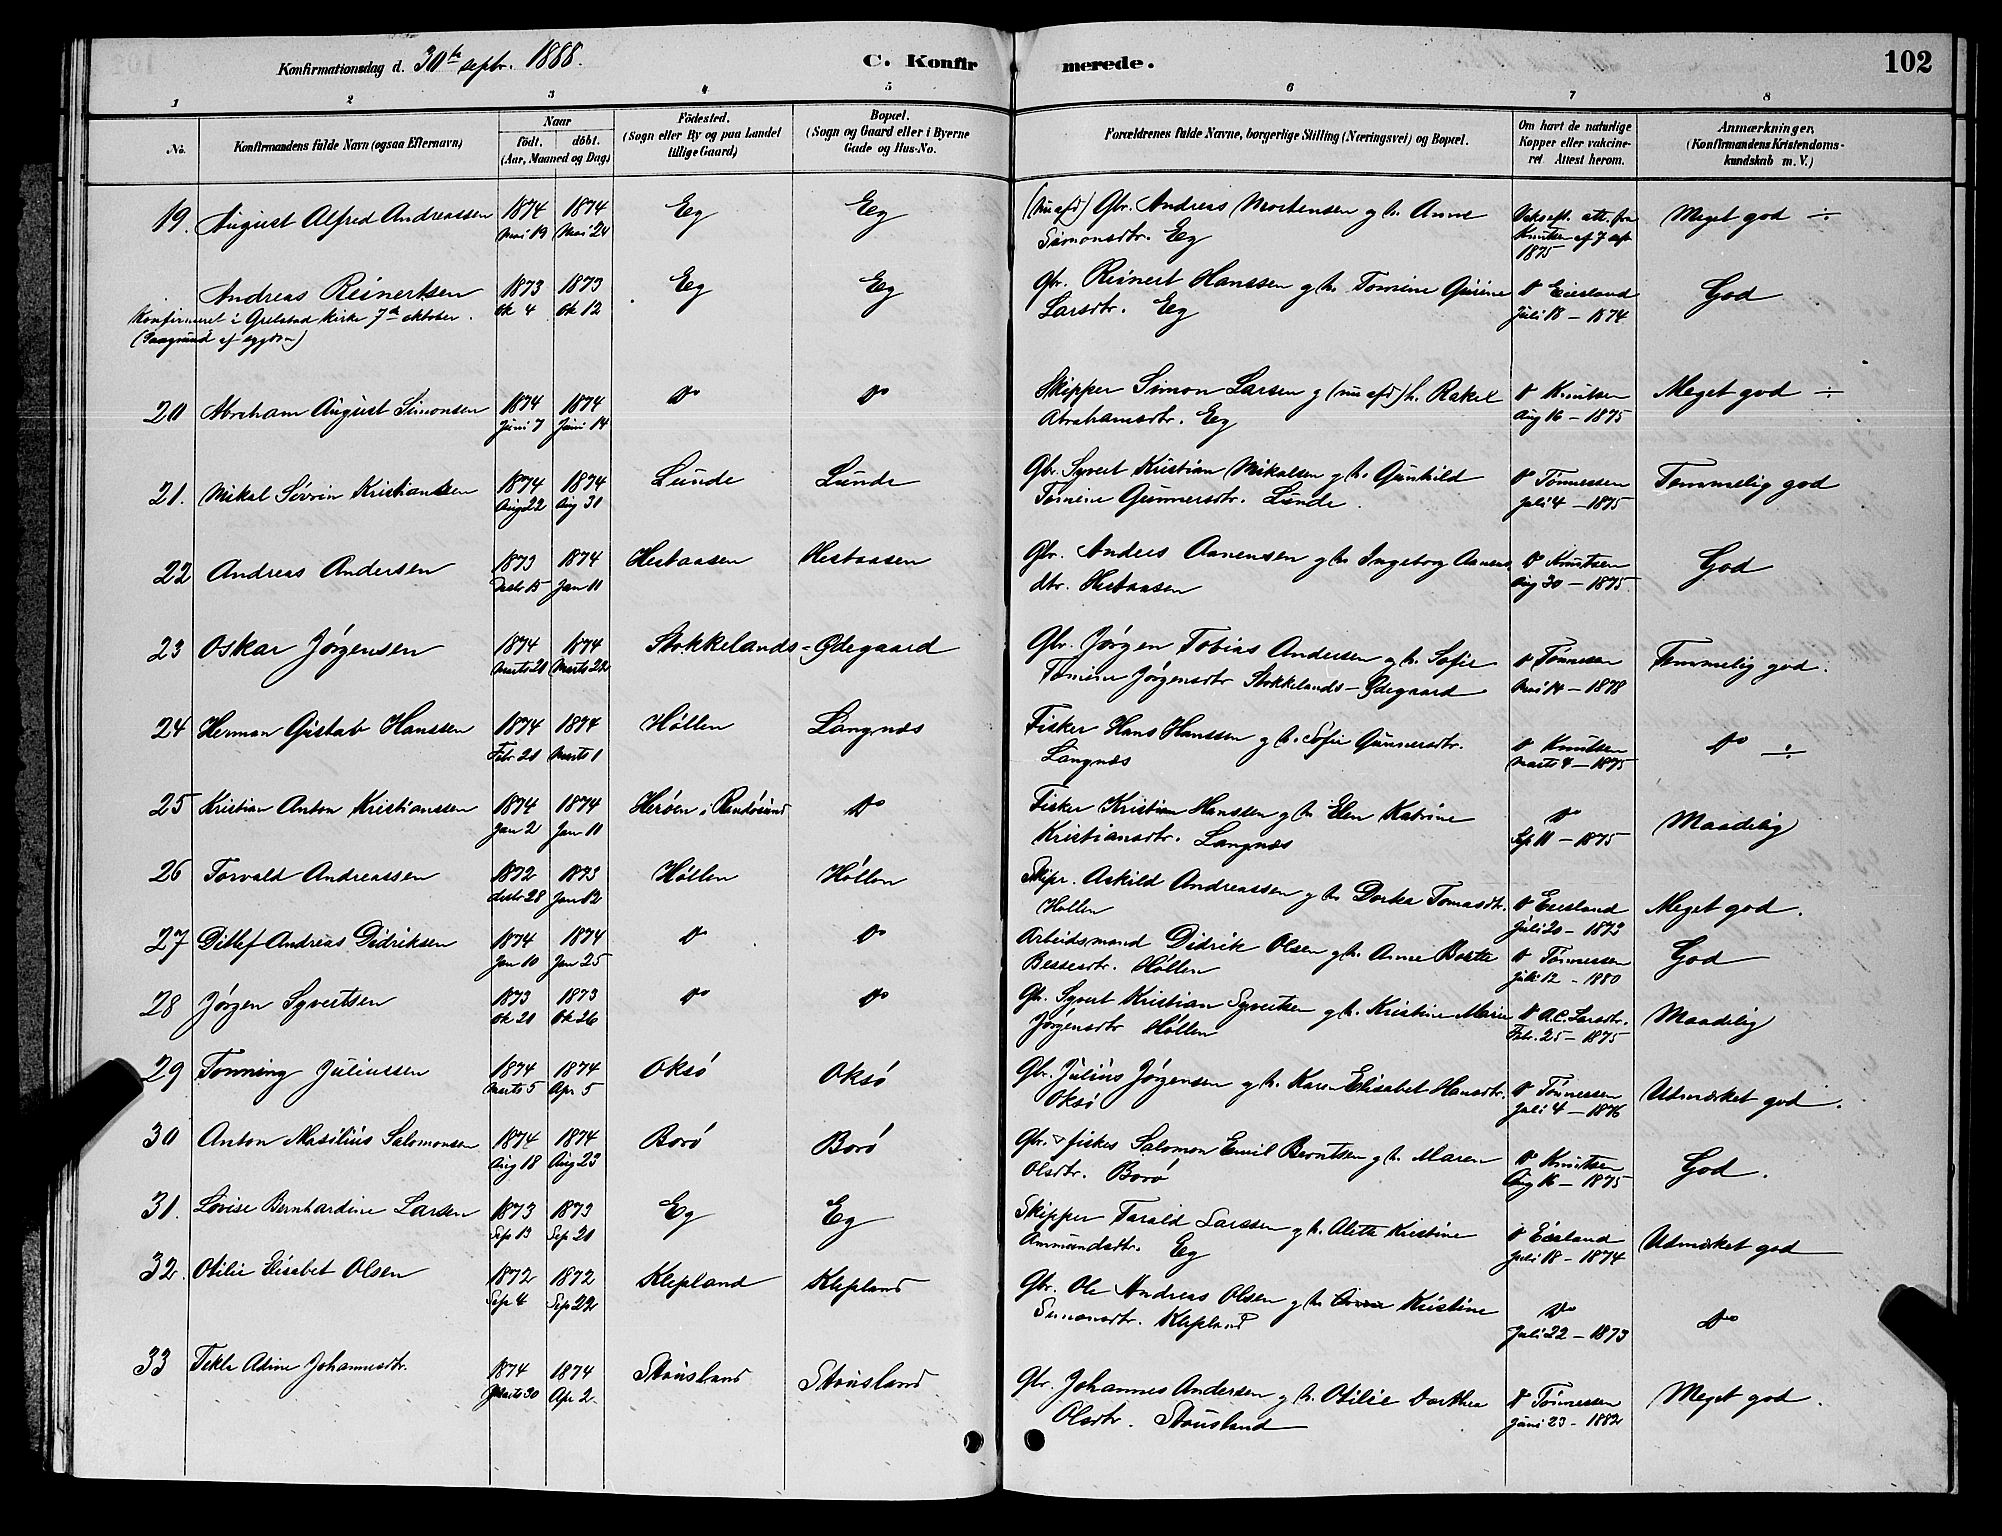 Konfirmationsdag d. 30te septbr. 1888.
C. Konfirmerede.
102
1 2 3 4 5 6 7 8
No.
Konfirmandens fulde Navn (ogsaa Efternavn)
Naar
födt. döbt.
(Aar, Maaned og Dag)
Födested.
(Sogn eller By og paa Landet
tillige Gaard)
Bopæl.
(Sogn og Gaard eller i Byerne
Gade og Hus-No.
Forældrenes fulde Navne, borgerlige Stilling (Næringsvei) og Bopæl.
Om havt de naturlige
Kopper eller vakcine-
ret Attest herom.
Anmærkninger.
(Konfirmandens Kristendoms-
kundskab m. V.)
19. August Alfred Andreassen 1874 Mai 19 1874 Mai 24 Eg Eg (nu afd) Gbr. Andreas Mortensen g h. Anne
Simonsdtr. Eg
Vaks. eft. att. fra
Knutsen af 7 sep
1875
Meget god ÷
Andreas Reinertsen 1873 Ok 4 1873 Ok 12 Eg Eg Gbr. Reinert Hanssen g h. Tomine Gurine
Larsdtr. Eg
do Eiesland
Juli 18 – 1874
God
Konfirmeret i Grelstad Kirke 7de oktober.
20 Abraham August Simonsen 1874 Juni 7 1874 Juni 14 do do Skipper Simon Larsen g (nu afd) h. Rakel
Abrahamsdtr. Eg
do Knutsen
Aug 16 – 1875
Meget god ÷
21. Mikal Sövrin Kristiansen 1874 Aug 22 1874 Aug 31 Lunde Lunde Gbr. Syvert Kristian Mikalsen g h. Gunhild
Tomine Gunnersdtr. Lunde.
do Tönnessen
Juli 4 – 1875
Temmelig god
22 Andreas Andersen 1873 Desbr 15 1874 Jan 11 Hestaasen Hestaasen Gbr. Anders Aanensen g h Ingeborg Aanens
dtr. Hestaasen
do Knutsen
Aug 30 – 1875.
God
23 Oskar Jörgensen 1874 Marts 20 1874 Marts 22 Stokkelands-Ødegaard Gbr. Jörgen Tobias Andersen g h. Sofie
Tomine Jörgensdtr Stokkelands-Ødegaard
do Tönnessen
Mai 14 – 1878
Temmelig god.
24 Herman Gustav Hanssen 1874 Febr 20 1874 Marts 1 Höllen Langnæs Fisker Hans Hanssen g h. Sofie Gunnersdtr.
Langnæs
do Knutsen
Marts 4 – 1875
do ÷
25 Kristian Anton Kristianssen 1874 Jan 2 1874 Jan 11 Heröen i Randösund do Fisker Kristian Hanssen g h Elen Katrine
Kristiansdtr. Langnæs
do
Sep 11 – 1875
Maadelig
26 Torvald Andreassen 1872 desbr 28 1873 Jan 12 Höllen Höllen Skipr. Askild Andreassen g h. Dorka Tomasdtr.
Höllen
do Eiesland
Juli 20 – 1873
Meget god.
27 Ditlef Andreas Didriksen 1874 Jan 10 1874 Jan 25 do do Arbeidsmand Didrik Olsen g h. Anne Berte
Bessesdtr. Höllen
do Tönnessen
Juli 12 – 1880
God
28 Jörgen Syvertsen 1873 Ok 20 1873 Ok 26 do do Gbr. Syvert Kristian Syvertsen g h. Kristine Marie
Jörgensdtr Höllen
do A.C. Larsdtr.
Febr. 25 – 1875
Maadelig
29 Tönning Juliussen 1874 Marts 5 1874 Apr 5 Oksö Oksö Gbr. Julius Jörgensen g h. Karen Elisabet Hansdtr.
Oksö
do Tönnessen
Juli 4 – 1876
Udmærket god.
30 Anton Masilius Salomonsen 1874 Aug 18 1874 Aug 23 Borö Borö Gbr. fisker Salomon Emil Berntsen g h. Maren
Olsdtr. Borö
do Knutsen
Aug 16 – 1875
God.
31. Lovise Bernhardine Larsen 1873 Sep 13 1873 Sep 21 Eg Eg Skipper Tarald Larssen g h. Alette Kristine
Ammundsdtr. Eg
do Eiesland
Juli 18 – 1874
Udmærket god
32. Otilie Elisabet Olsen 1872 Sep 4 1872 Sep 22 Klepland Klepland Gbr. Ole Andreas Olsen g h Kristine
Simonsdtr. Klepland
do
Juli 22 – 1873
do
33 Tekla Adine Johannesdtr. 1874 Marts 30 1874 Apr 2 Stausland Stausland Gbr. Johannes Andersen g h. Otilie Dorthea
Olsdtr. Stausland
do Tönnessen
Juni 23 – 1882
Meget god.